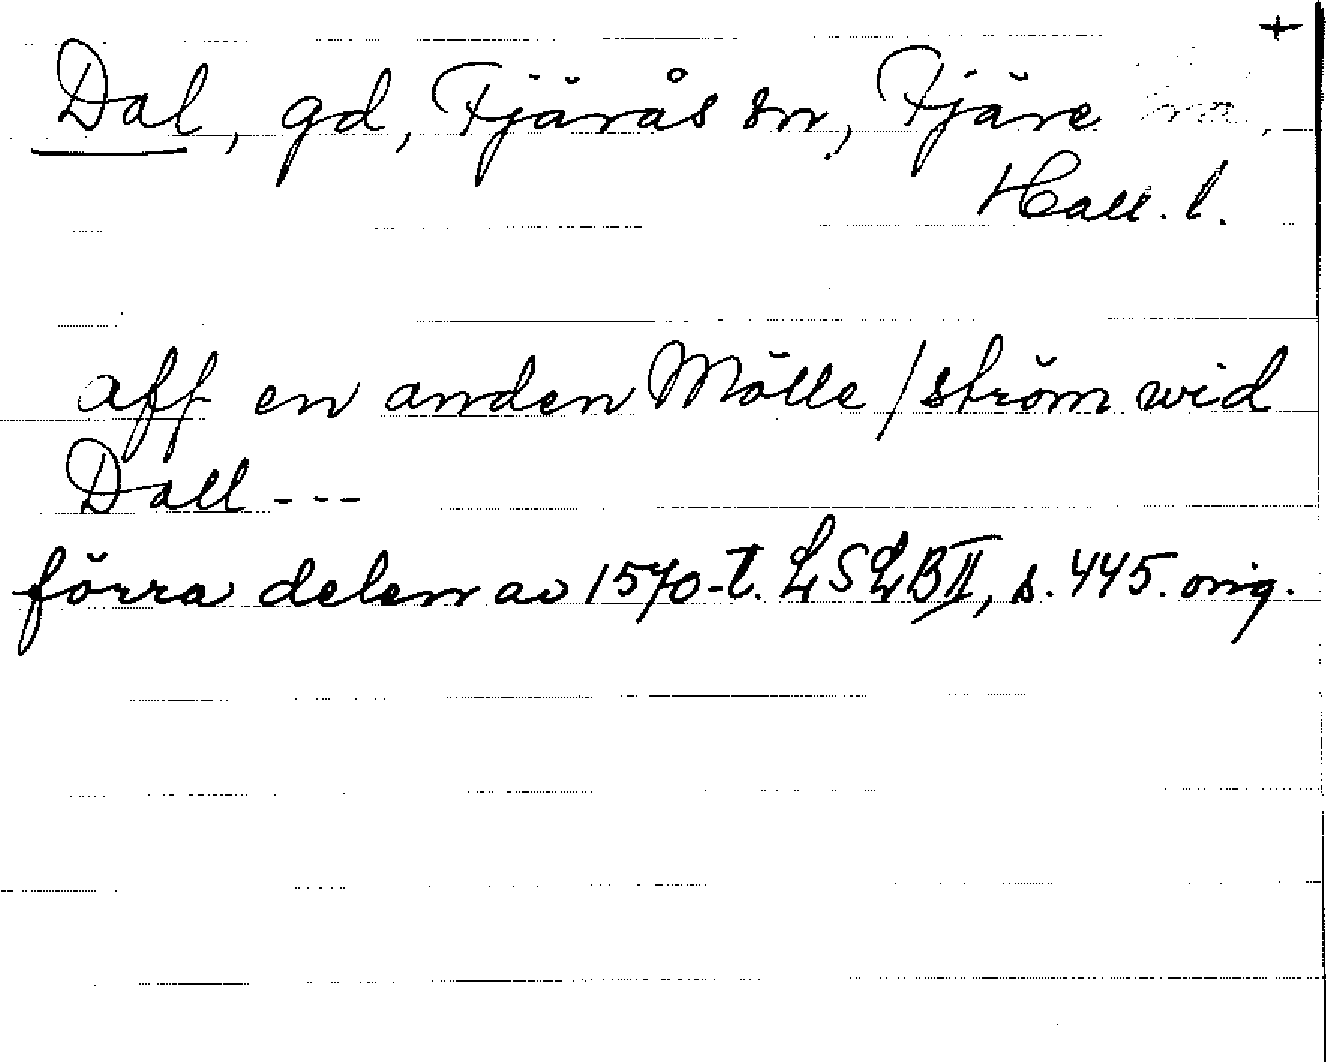 +
Dal, gd, Fjärås sn, Fjäre hd,
Hall. l.
aff en anden Mölle/ström wid
Dall ---
förra delen av 1570-t. LSLB II, s. 445. orig.